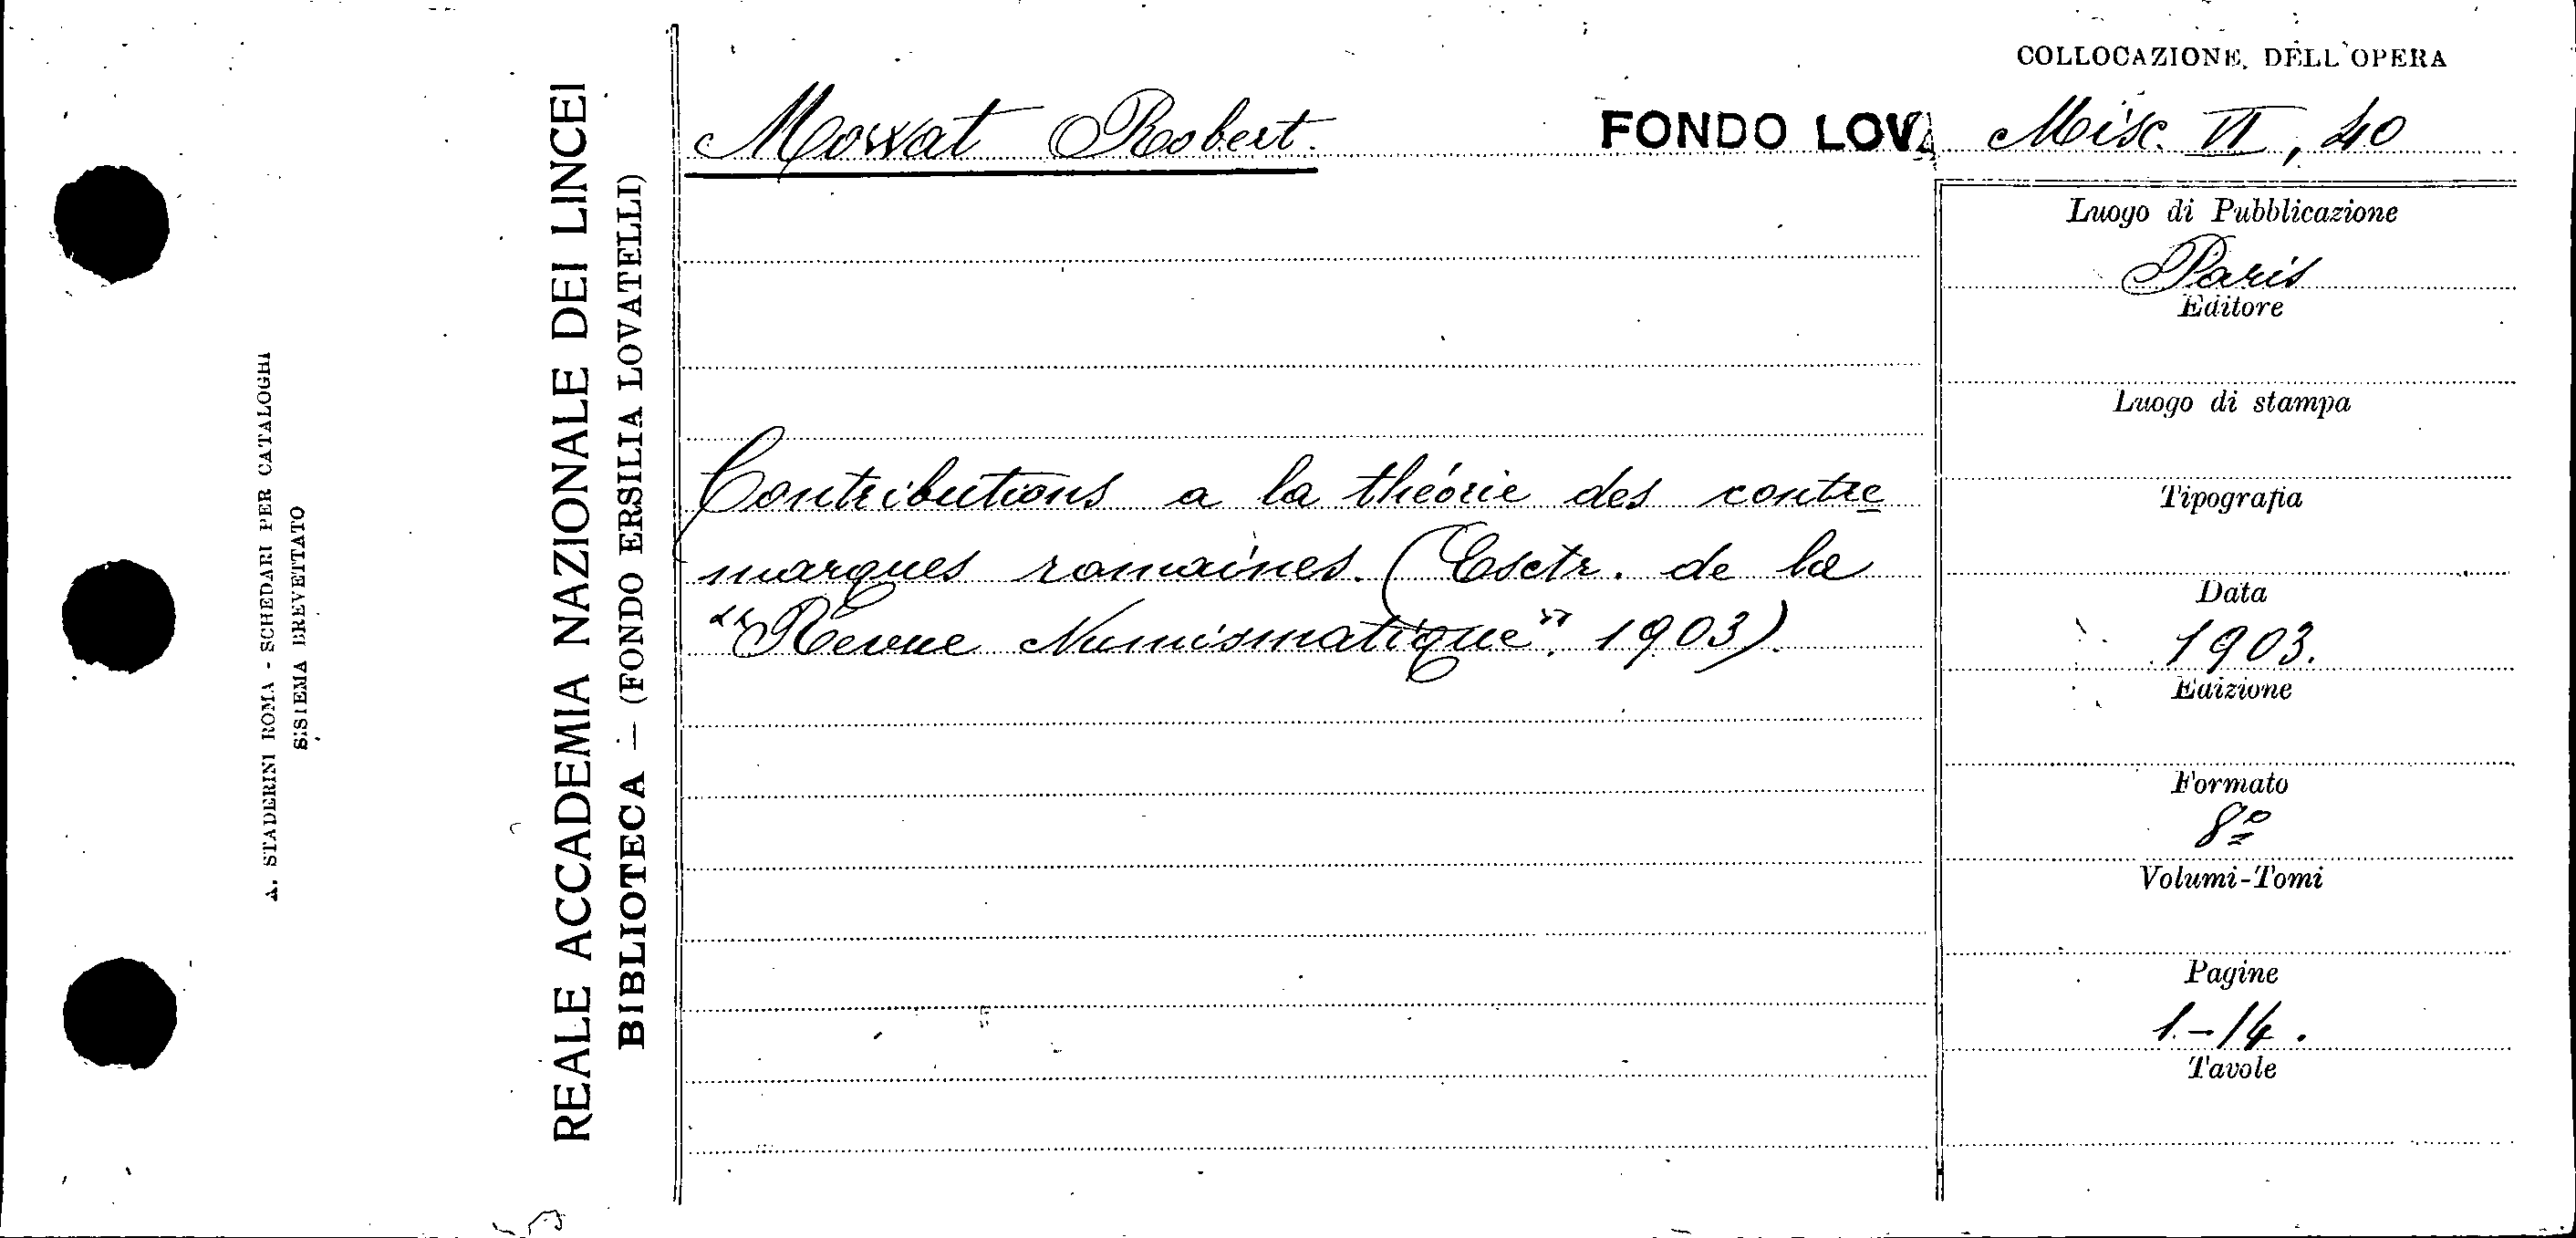 A. STADERINI ROMA - SCHEDARI PER CATALOGHI
SISIEMA BREVETTATO
REALE ACCADEMIA NAZIONALE DEI LINCEI
BIBLIOTECA — (FONDO ERSILIA LOVATELLI)
COLLOCAZIONE DELL'OPERA
Mowat Robert. FONDO LOVA Misc. VI, 40
Contributions a la théorie des contre
marques romaines. (Esctr. de la
"Revue Numismatique", 1903).
Luogo di Pubblicazione
Paris
Editore
Luogo di stampa
Tipografia
Data
1903.
Edizione
Formato
8º
Volumi-Tomi
Pagine
1-14.
Tavole